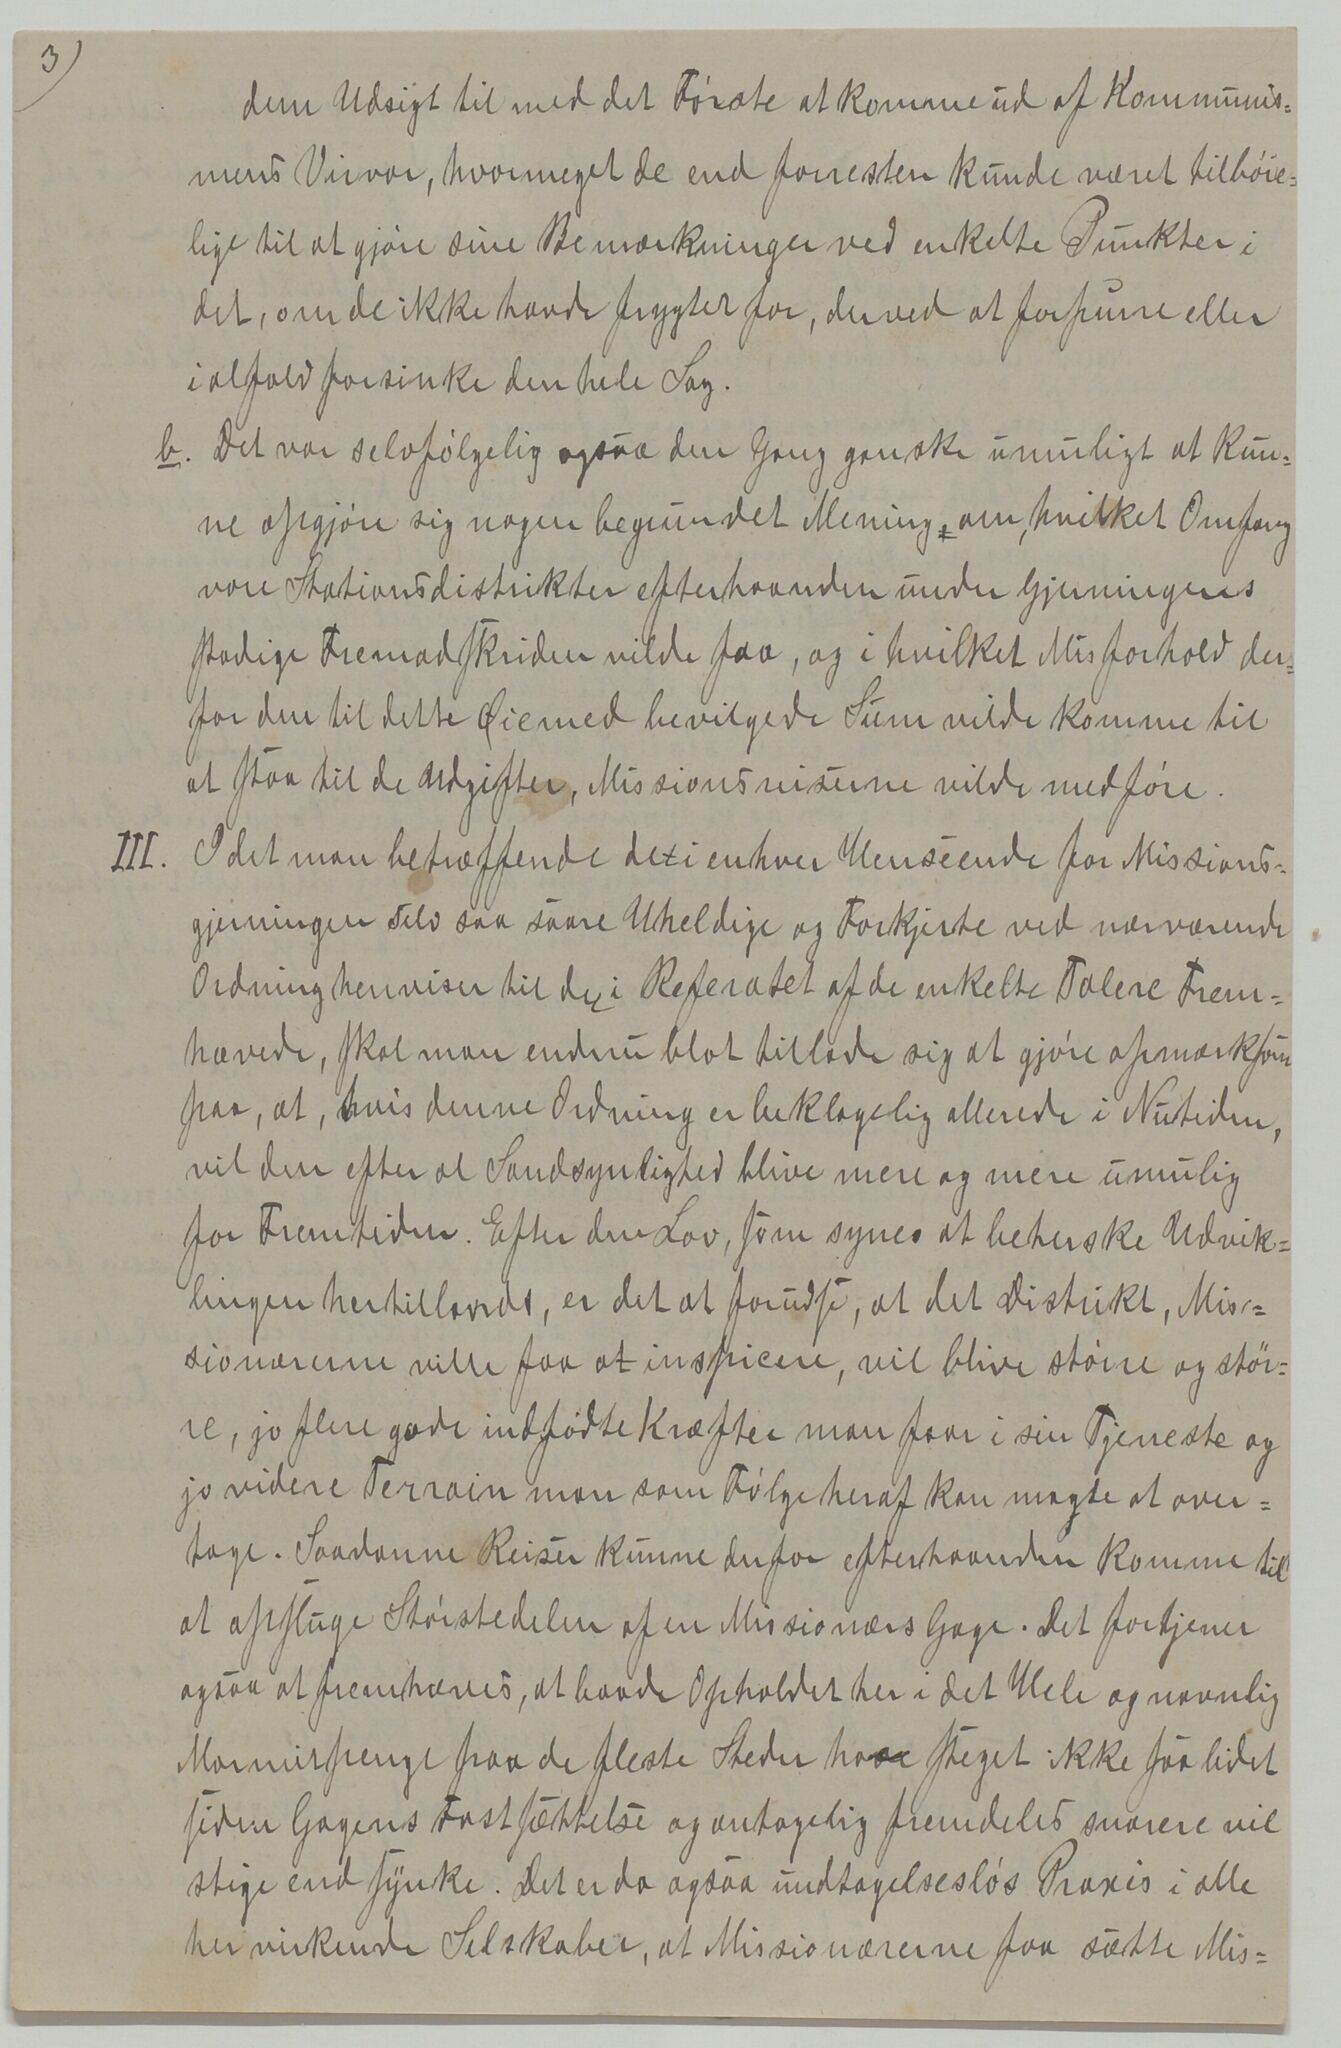 3)
dem Udsigt til med det Første at komme ud af Kommunis=
mens Virvar, hvormeget de end forresten kunde været tilböie=
lige til at gjöre sine Bemærkninger ved enkelte Punkter i
det, om de ikke havde frygtet for, derved at forpurre eller
ialfald forsinke den hele Sag.
b. Det var selvfölgelig ogsaa den Gang ganske umuligt at kun=
ne opgjöre sig nogen begrundet Mening om, hvilket Omfang
vore Stationsdistrikter efterhaanden under Gjerningens
stadige Fremadskriden vilde faa, og i hvilket Misforhold der=
for den til dette Øiemed bevilgede Sum vilde komme til
at staa til de Udgifter, Missionsreiserne vilde medföre.
III. Idet man betræffende det i enhver Henseende for Missions=
gjerningen selv saa saare Uheldige og Forkjerte ved nærværende
Ordning henviser til de i Referatet af de enkelte Talere Frem=
hævede, skal man endnu blot tillade sig at gjöre opmærksom
paa, at, hvis denne Ordning er beklagelig allerede i Nutiden,
vil den efter al Sandsynlighed blive mere og mere umulig
for Fremtiden. Efter den Lov, som synes at beherske Udvik=
lingen hertillands, er det at forudse, at det Distrikt, Mis=
sionærerne ville faa at inspicere, vil blive större og stör=
re, jo flere gode indfödte Kræfter man faar i sin Tjeneste og
jo videre Terrain man som Fölge heraf kan magte at over=
tage. Saadanne Reiser kunne derfor efterhaanden komme til
at opsluge Störstedelen af en Missionærs Gage. Det fortjener
ogsaa at fremhæves, at baade Opholdet her i det Hele og navnlig
Marmitpenge paa de fleste Steder have steget ikke saa lidet
siden Gagens Fastsættelse og antagelig fremdeles snarere vil
stige end synke. Det er da ogsaa undtagelseslös Praxis i alle
her virkende Selskaber, at Missionærerne faa sætte Mis=